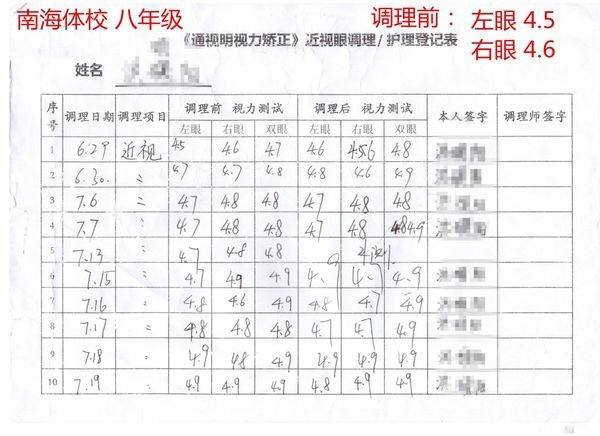 南海体校 八年级
调理前：左眼 4.5
右眼 4.6
《通视明视力矫正》近视眼调理/护理登记表
姓名
序号 调理日期 调理项目 调理前 视力测试 调理后 视力测试 本人签字 调理师签字
左眼 右眼 双眼 左眼 右眼 双眼
1 6.29 近视 4.5 4.6 4.7 4.6 4.8
2 6.30. 〃 4.7 4.7 4.8 4.8 4.6 4.9
3 7.6 〃 4.7 4.8 4.8 4.7 4.8 4.8
4 7.7 〃 4.7 4.8 4.8 4.7 4.8 4.84.9
5 7.13 〃 4.7 4.8 4.8
6 7.15 〃 4.7 4.9 4.9 4.9
7 7.16 〃 4.8 4.6 4.9 4.8 4.7 4.9
8 7.17 〃 4.8 4.8 4.8 4.7 4.7 4.9
9 7.18 〃 4.9 4.8 4.9 4.9 4.9 4.9
10 7.19 〃 4.9 4.9 4.9 4.8 4.9 4.9